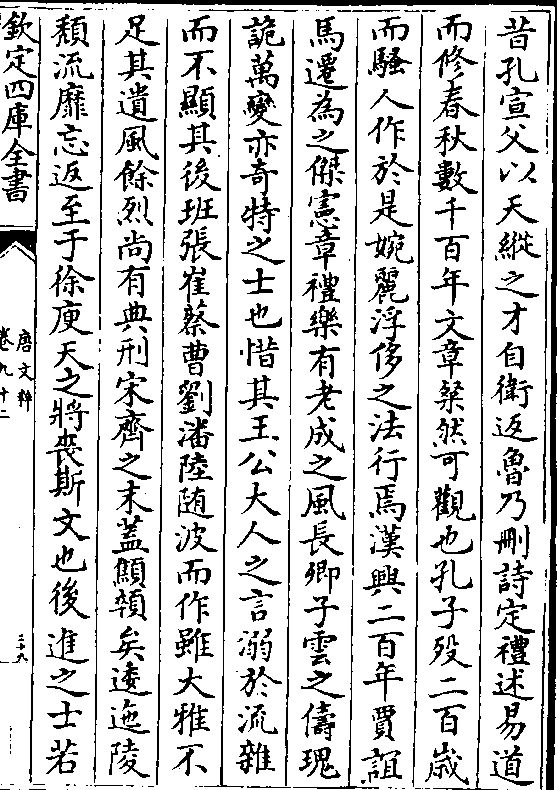 昔孔宣父以天縱之才自衛返魯乃刪詩定禮述易道
而修春秋數千百年文章粲然可觀也孔子歿二百歲
而騷人作於是婉麗浮侈之法行焉漢興二百年賈誼
馬遷為之傑憲章禮樂有老成之風長卿子雲之儔瑰
詭萬變亦奇特之士也惜其王公大人之言溺於流雜
而不顯其後班張崔蔡曹劉潘陸随波而作雖大雅不
足其遺風餘烈尚有典刑宋齊之末蓋顦顇矣逶迤陵
頽流靡忘返至于徐庾天之將喪斯文也後進之士若
欽定四庫全書
唐文粹
卷九十二
二十九